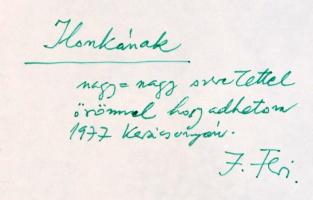 Ilonkának
nagy=nagy szeretettel
örömmel hogy adhatom
1977 Karácsonyán.
F. Feri.